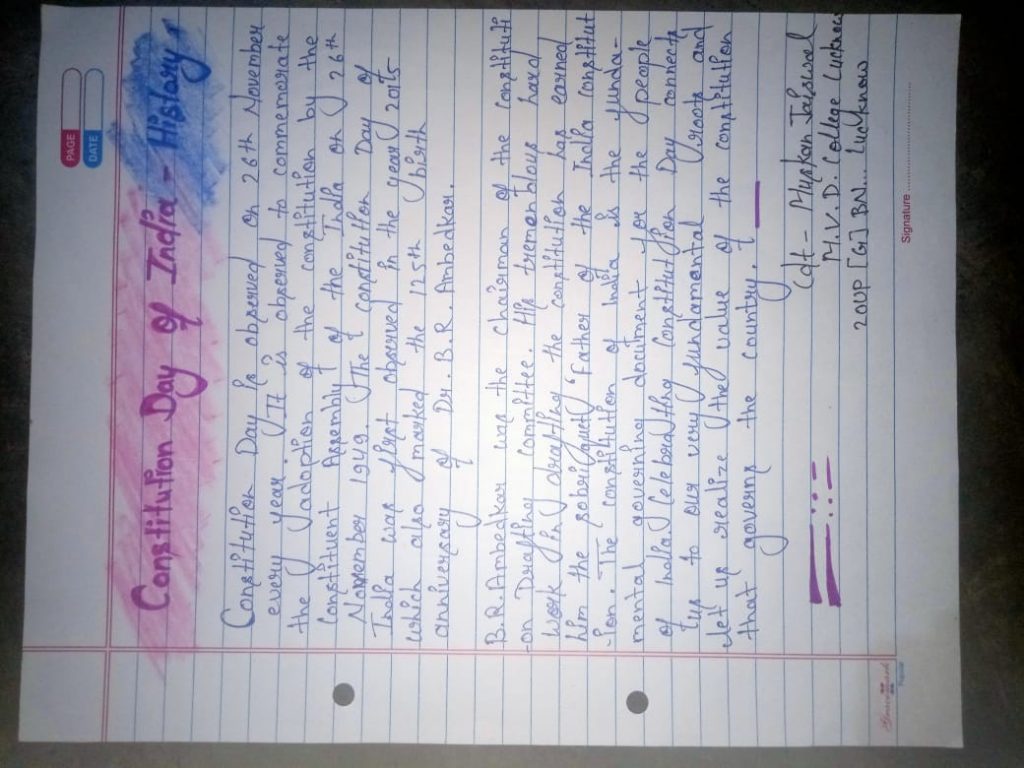 PAGE
DATE
Constitution Day of India - History
Constitution Day is observed on 26th November
every year. It is observed to commemorate
the adoption of the constitution by the
Constituent Assembly of the India on 26th
November 1949. The constitution Day of
India was first observed in the year 2015
which also marked the 125th birth
anniversary of Dr. B. R. Ambedkar.
B.R. Ambedkar was the chairman of the constituti
-on Drafting committee. His tremenblous hard
work in drafting the constitution has earned
him the sobriquet 'Father of the India constitut
-ion. The constitution of India is the funda-
mental governing document for the people
of India. Celebrating Constitution Day connects
us to our very fundamental roots and
let us realize the value of the constitution
that govern the country.
Cdt - Muskan Jaiswal
M.V.D. College Lucknow
20UP [G] BN.. Lucknow
Signature